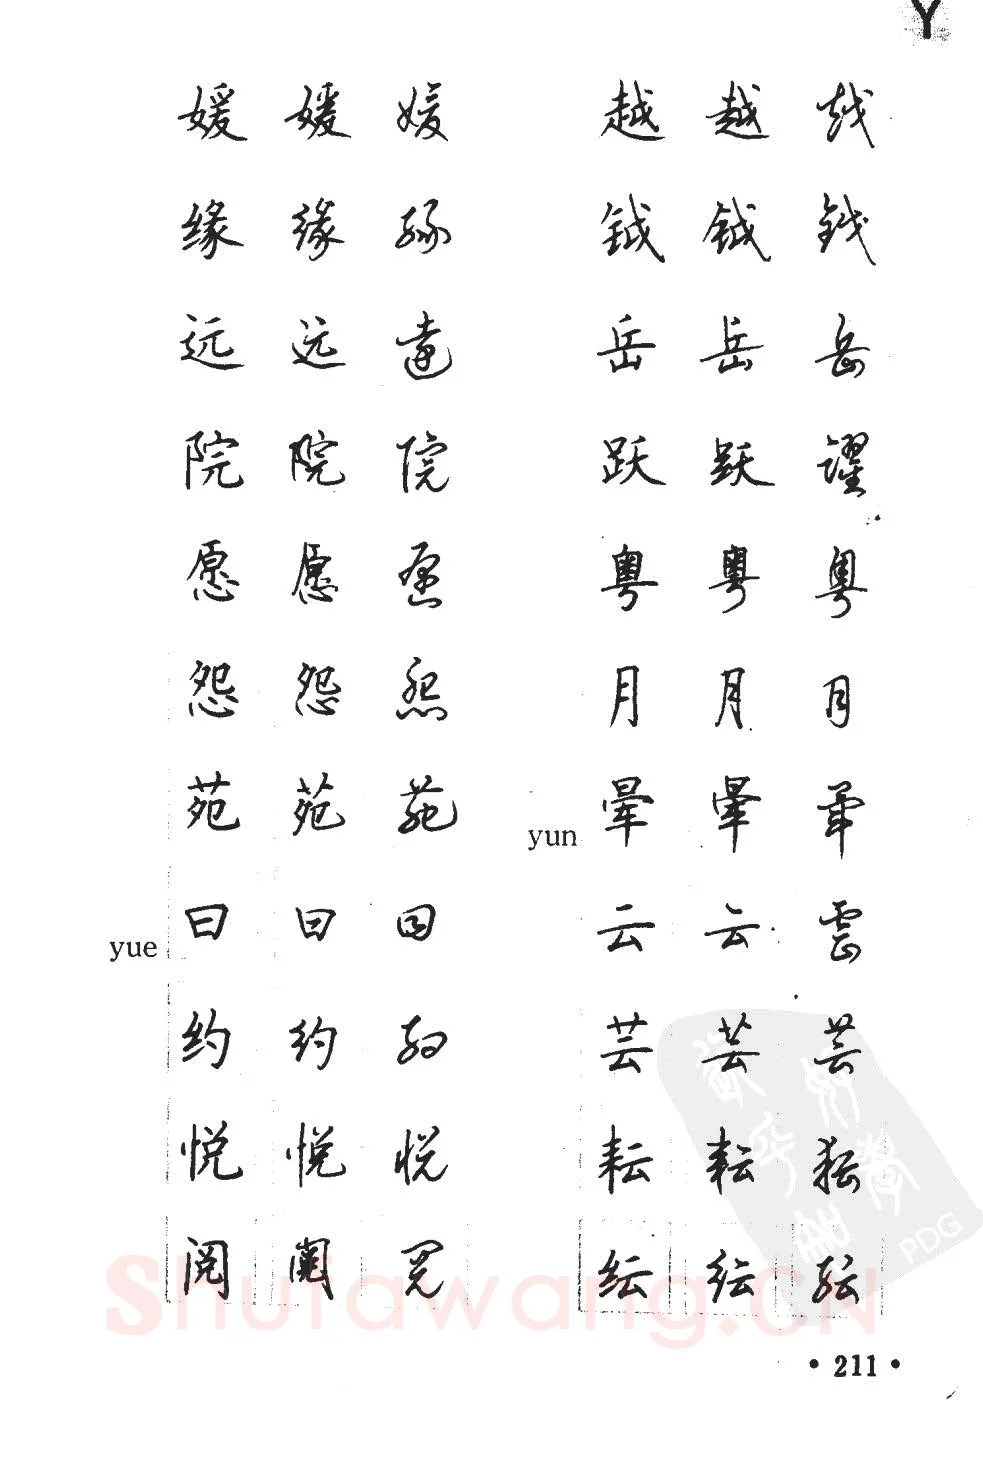 Y
媛 媛 媛
缘 缘 缘
远 远 遠
院 院 院
愿 愿 愿
怨 怨 怨
苑 苑 苑
yue 曰 曰 曰
约 约 约
悦 悦 悦
阅 阅 阅
越 越 越
钺 钺 钺
岳 岳 岳
跃 跃 躍
粤 粤 粤
月 月 月
yun 晕 晕 晕
云 云 雲
芸 芸 芸
耘 耘 耘
纭 纭 纭
Shufawang.CN
PDG
• 211 •